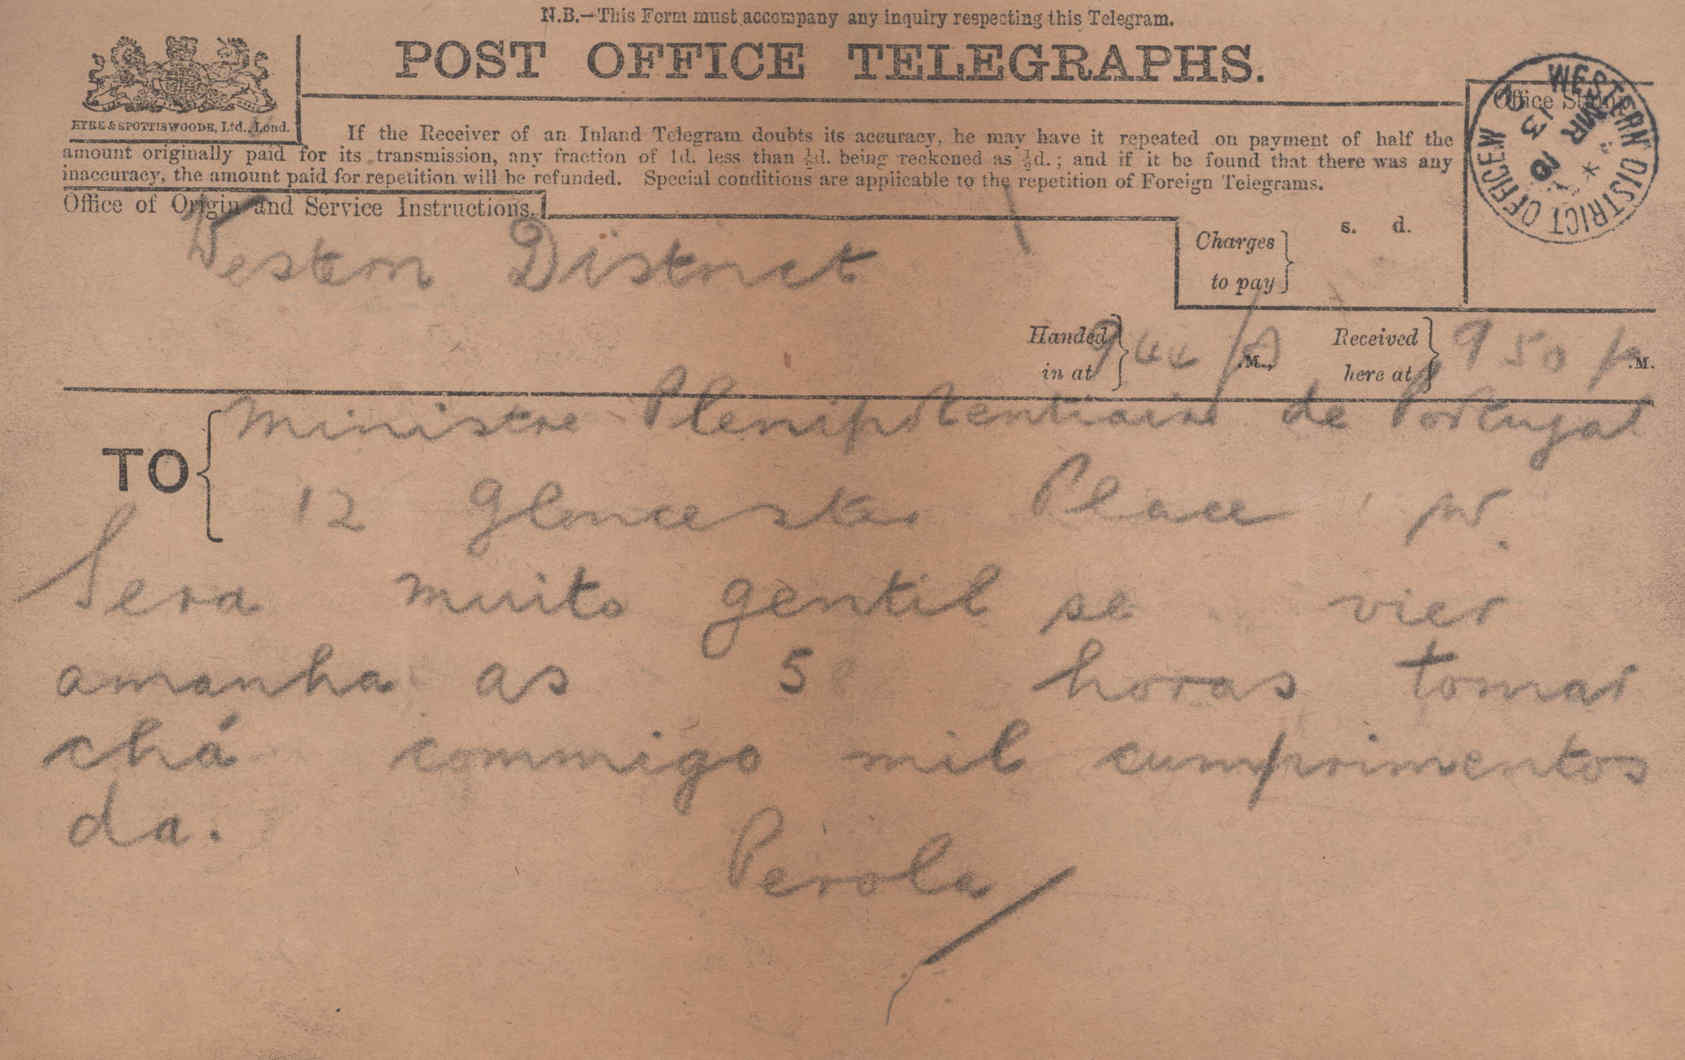 N.B.—This Form must accompany any inquiry respecting this Telegram.
POST OFFICE TELEGRAPHS.
EYRE & SPOTTISWOODE, Ltd., Lond.
If the Receiver of an Inland Telegram doubts its accuracy, he may have it repeated on payment of half the
amount originally paid for its transmission, any fraction of 1d. less than ½d. being reckoned as ½d.; and if it be found that there was any
inaccuracy, the amount paid for repetition will be refunded. Special conditions are applicable to the repetition of Foreign Telegrams.
Office Stamp
WESTERN DISTRICT OFFICE W
MR
13
10
Office of Origin and Service Instructions.
Western District
Charges to pay
s. d.
Handed in at 9 44 p .M.,
Received here at 9 50 p .M.
TO
Ministre Plenipotentiaire de Portugal
12 Gloucester Place W.
Sera muito gentil se vier
amanha as 5 horas tomar
chá commigo mil cumprimentos
da.
Perola